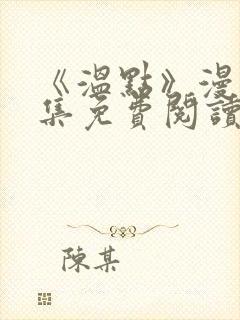 《溫點》漫
集免費閱讀
陳某